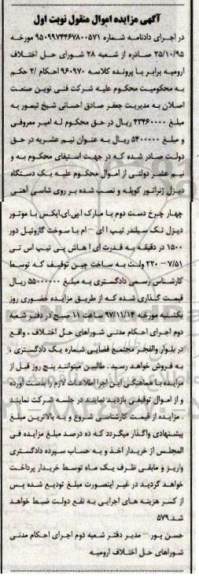 آگهی مزایده اموال منقول نوبت اول
در اجرای دادنامه شماره ۹۵۰۹۹۷۴۴۶۷۸۰۰۵۷۱ مورخه
۲۵/۱۰/۹۵ صادره از شعبه ۲۸ شورای حل اختلاف
ارومیه برابر با پرونده کلاسه ۹۶۰۹۷۰ احکام /۲ حکم
به محکومیت محکوم علیه شرکت فنی نوین صنعت
اصلان به مدیریت جعفر صادق احسانی شیخ تیمور به
مبلغ ۲۳۴۶۰۰۰۰ ریال در حق محکوم له امیر معروفی
و مبلغ ۵۴۰۰۰۰۰ ریال به عنوان نیم عشریه در حق
دولت صادر شده که در جهت استیفای محکوم به و
نیم عشر دولتی از اموال محکوم علیه یک دستگاه
دیزل ژنراتور کوپله و نصب شده بر روی شاسی آهنی
چهار چرخ دست دوم با مارک ای‌پی‌ایکس با موتور
دیزل تک سیلندر تیپ ا ای – ام با سوخت گازوئیل دور
۱۵۰۰ در دقیقه به قدرت ای اهاش پی تیپ اس تی
۷/۵۱ – ۲۲۰ ولت به ساخت چین توقیف که توسط
کارشناس رسمی دادگستری به مبلغ ۵۵۰۰۰۰۰۰ ریال
قیمت گذاری شده که از طریق مزایده حضوری روز
یکشنبه مورخه ۹۷/۱۱/۱۴ ساعت ۱۱ صبح در دفتر شعبه
دوم اجرای احکام مدنی شوراهای حل اختلاف ، واقع
در بلوار والفجر مجتمع قضایی شماره یک دادگستری ،
به فروش خواهد رسید . طالبین میتوانند پنج روز قبل از
مزایده با هماهنگی این اجرا اطلاعات لازم را بدست آورده
و از اموال توقیفی بازدید نمایند در جلسه شرکت نمایند
. مزایده از قیمت کارشناسی شروع و به بالاترین مبلغ
پیشنهادی واگذار میگردد که ده درصد مبلغ مزایده فی
المجلس از خریدار اخذ و به حساب سپرده دادگستری
واریز و مابقی ظرف یک ماه توسط خریدار پرداخت
خواهد گردید در غیر اینصورت مبلغ تودیع شده پس
از کسر هزینه های اجرایی به نفع دولت ضبط خواهد
شد.۵۷۹
حسن پور – مدیر دفتر شعبه دوم اجرای احکام مدنی
شوراهای حل اختلاف ارومیه